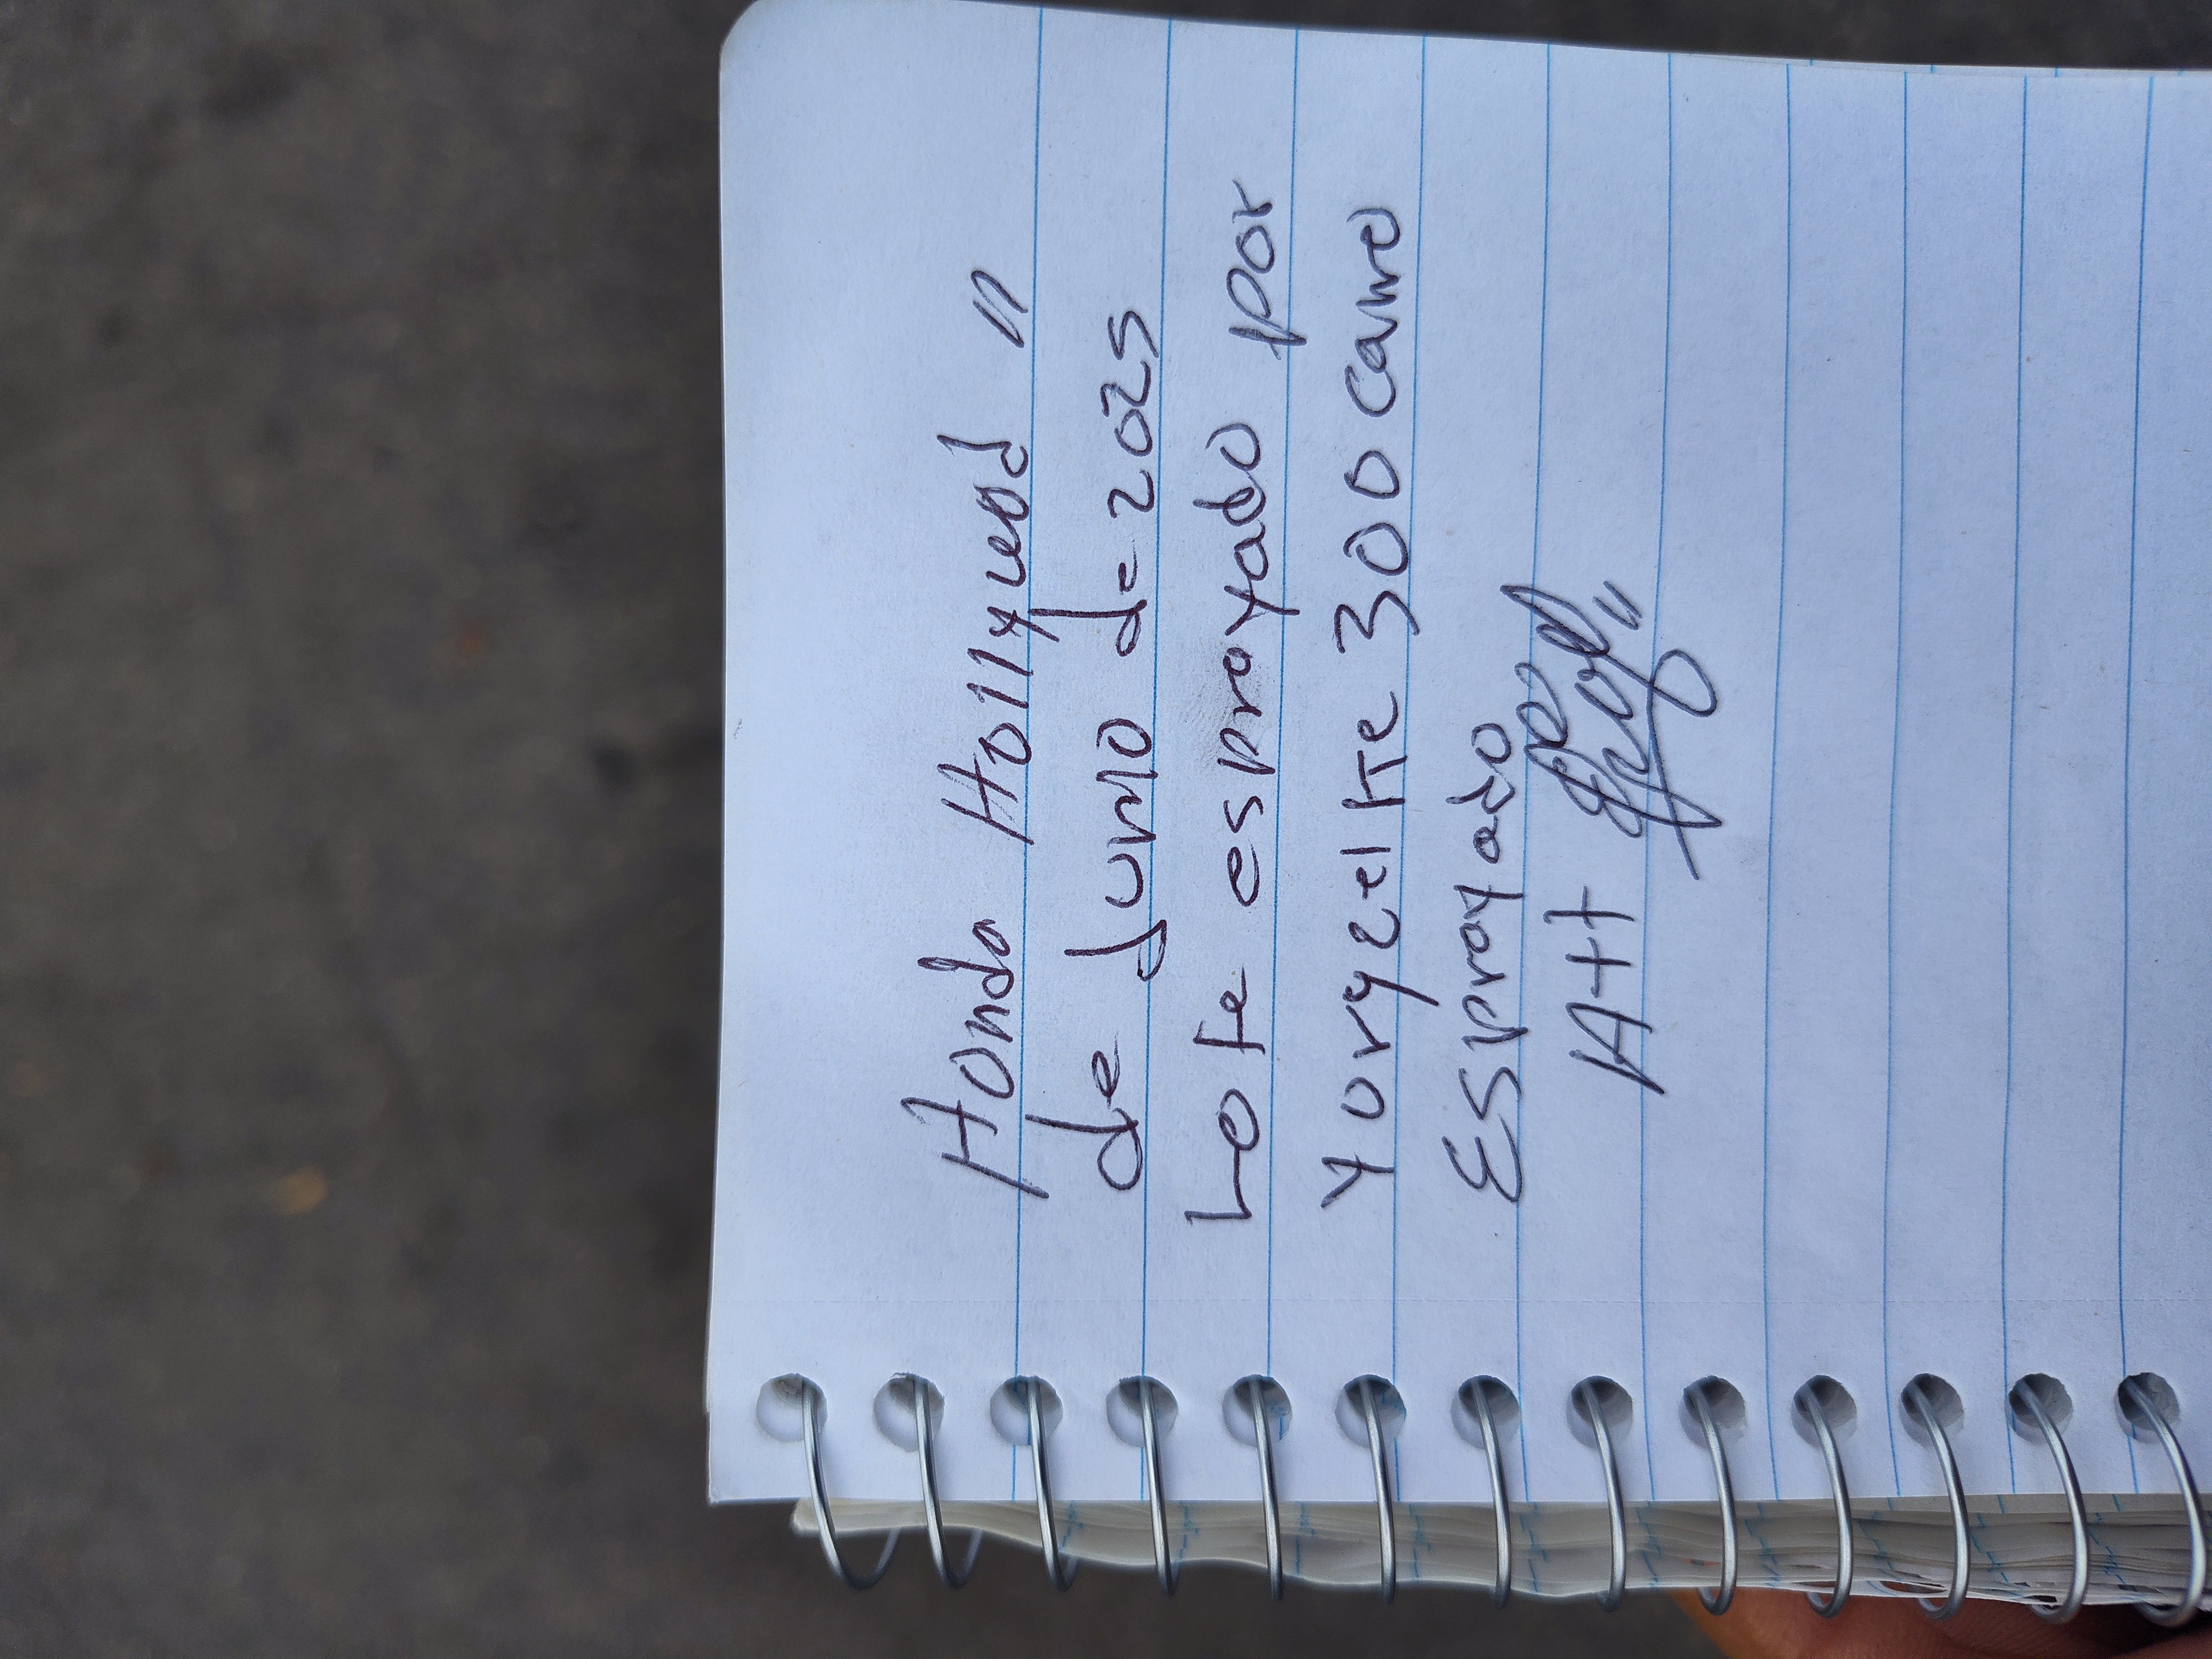 Honda Hollyuood "
de Junio de 2025
Lote esprayado por
Yorgzelite 300 carro
Esprayado
AHH